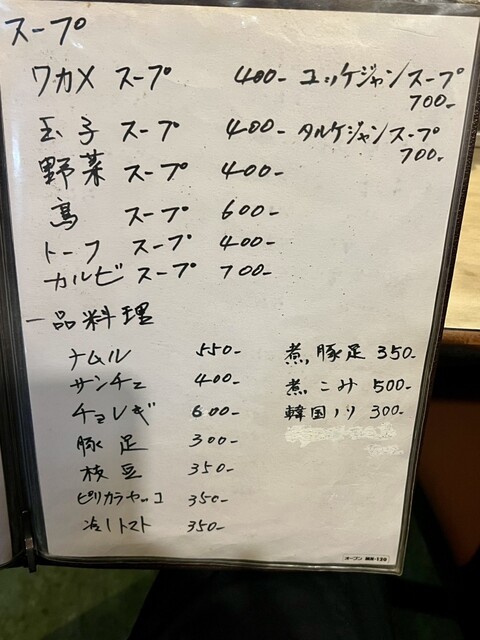 スープ
ワカメ スープ 400- ユッケジャンスープ
700-
玉子 スープ 400- タルケジャンスープ
700-
野菜 スープ 400-
スープ 600-
トーフ スープ 400-
カルビ スープ 700-
一品料理
ナムル 550- 煮豚足 350-
サンチェ 400- 煮こみ 500-
チョレギ 600- 韓国ノリ 300-
豚足 300-
枝豆 350-
ピリカラヤッコ 350-
冷しトマト 350-
オープン